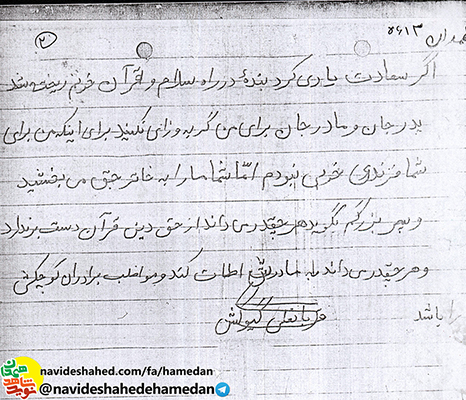 ۲
همدان ۵۶۱۳
اگر سعادت یاری کرد بندهٔ در راه سلام و قرآن خونم ریخته شد
پدرجان و مادرجان برای من گریه وزاری نکنید برای اینکه من برای
شما فرزندی خوبی نبودم امّا شما ما را به خاتر حق می بخشید
و پسر بزرگم بگوید هر چقدر می داند از حق دین قرآن دست برندارد
و هر چقدر می داند به مادرش اطاعت کند و مواظب برادران کوچکش
را باشد
قربانعلی
navideshahed.com/fa/hamedan
@navideshahedehamedan
نوید شاهد همدان